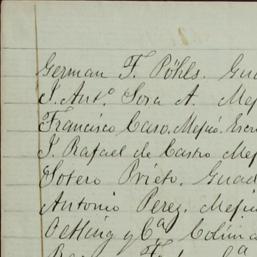 German F. Pöhls. Gua
J. Anto. Sora A. Mej
Francisco Caso. Mejico. Escri
J. Rafael de Castro Mej
Sotero Prieto. Guad
Antonio Perez. Mejic
Oetling y Ca. Colima